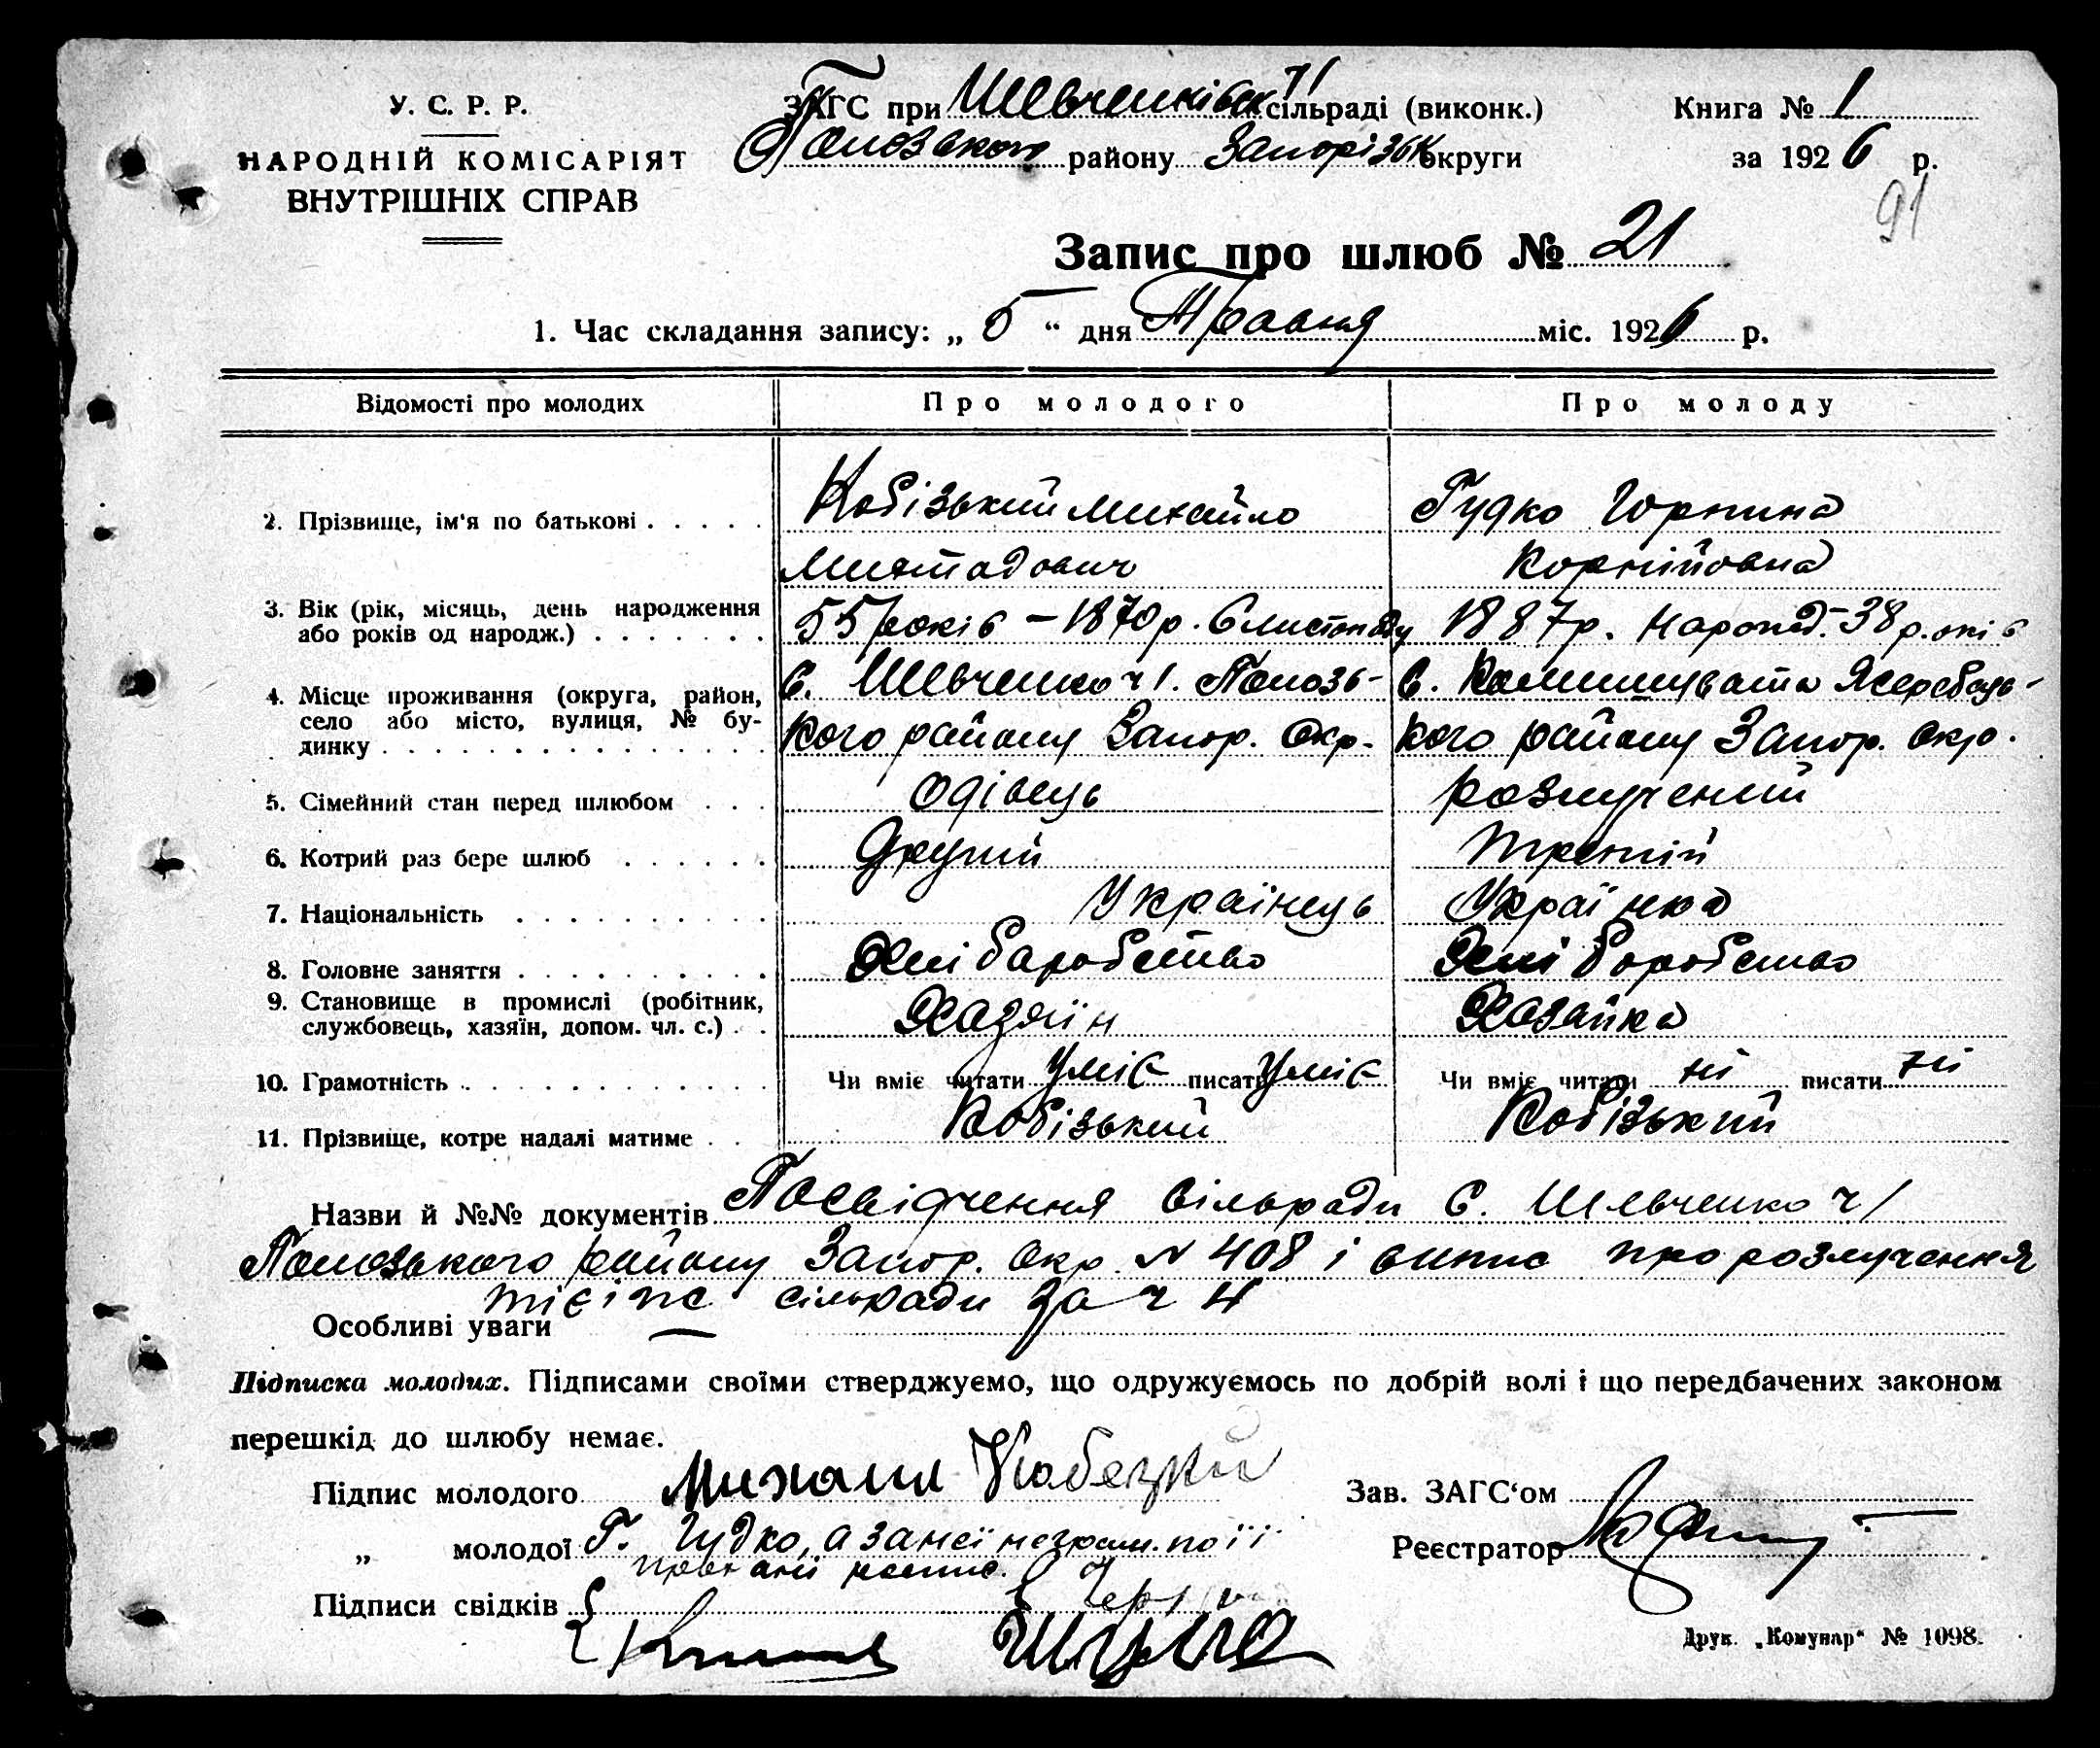 У. С. Р. Р.
НАРОДНІЙ КОМІСАРІЯТ
ВНУТРІШНІХ СПРАВ
ЗАГС при Шевченківск ч1 сільраді (виконк.)
Пологзького району Запорізьк округи
Книга № 1
за 1926 р.
91
Запис про шлюб № 21
1. Час складання запису: „ 5 “ дня Травня міс. 1926 р.
Відомості про молодих Про молодого Про молоду
2. Прізвище, ім'я по батькові . . . . . Кобізький Михайло Гудко Горпина
Корнійовна
3. Вік (рік, місяць, день народження 55 років – 1870 р. 6 листопаду 1887 р. народ. – 38 р. оків
або років од народж.) . . . . . . .
4. Місце проживання (округа, район, с. Шевченко ч 1. Пологзь- с. Комишувата Жеребець-
село або місто, вулиця, № бу- кого району Запор. Окр. кого району Запор. окр.
динку . . . . . . . . . . . . . . .
5. Сімейний стан перед шлюбом . . . одівець розлучений
6. Котрий раз бере шлюб . . . . . . другий третій
7. Національність . . . . . . . . . . Українець Українка
8. Головне заняття . . . . . . . . . . Хліборобство Хліборобство
9. Становище в промислі (робітник, Хазяїн Хазайка
службовець, хазяїн, допом. чл. с.) . .
10. Грамотність . . . . . . . . . . . . Чи вміє читати уміє писати уміє Чи вміє читати ні писати ні
11. Прізвище, котре надалі матиме . . Кобізький Кобізький
Назви й №№ документів Посвідчення сільради с. Шевченко ч 1
Пологзького району Запор. Окр. № 408 і випис про розлучення
тієї ж сільради за ч 4
Особливі уваги —
Підписка молодих. Підписами своїми стверджуємо, що одружуємось по добрій волі і що передбачених законом
перешкід до шлюбу немає.
Підпис молодого Михаил Кобезкий
Зав. ЗАГС'ом
„ молодої Г. Гудко, а за неї неграм. по її
Реєстратор
Підписи свідків
Друк. „Комунар“ № 1098.